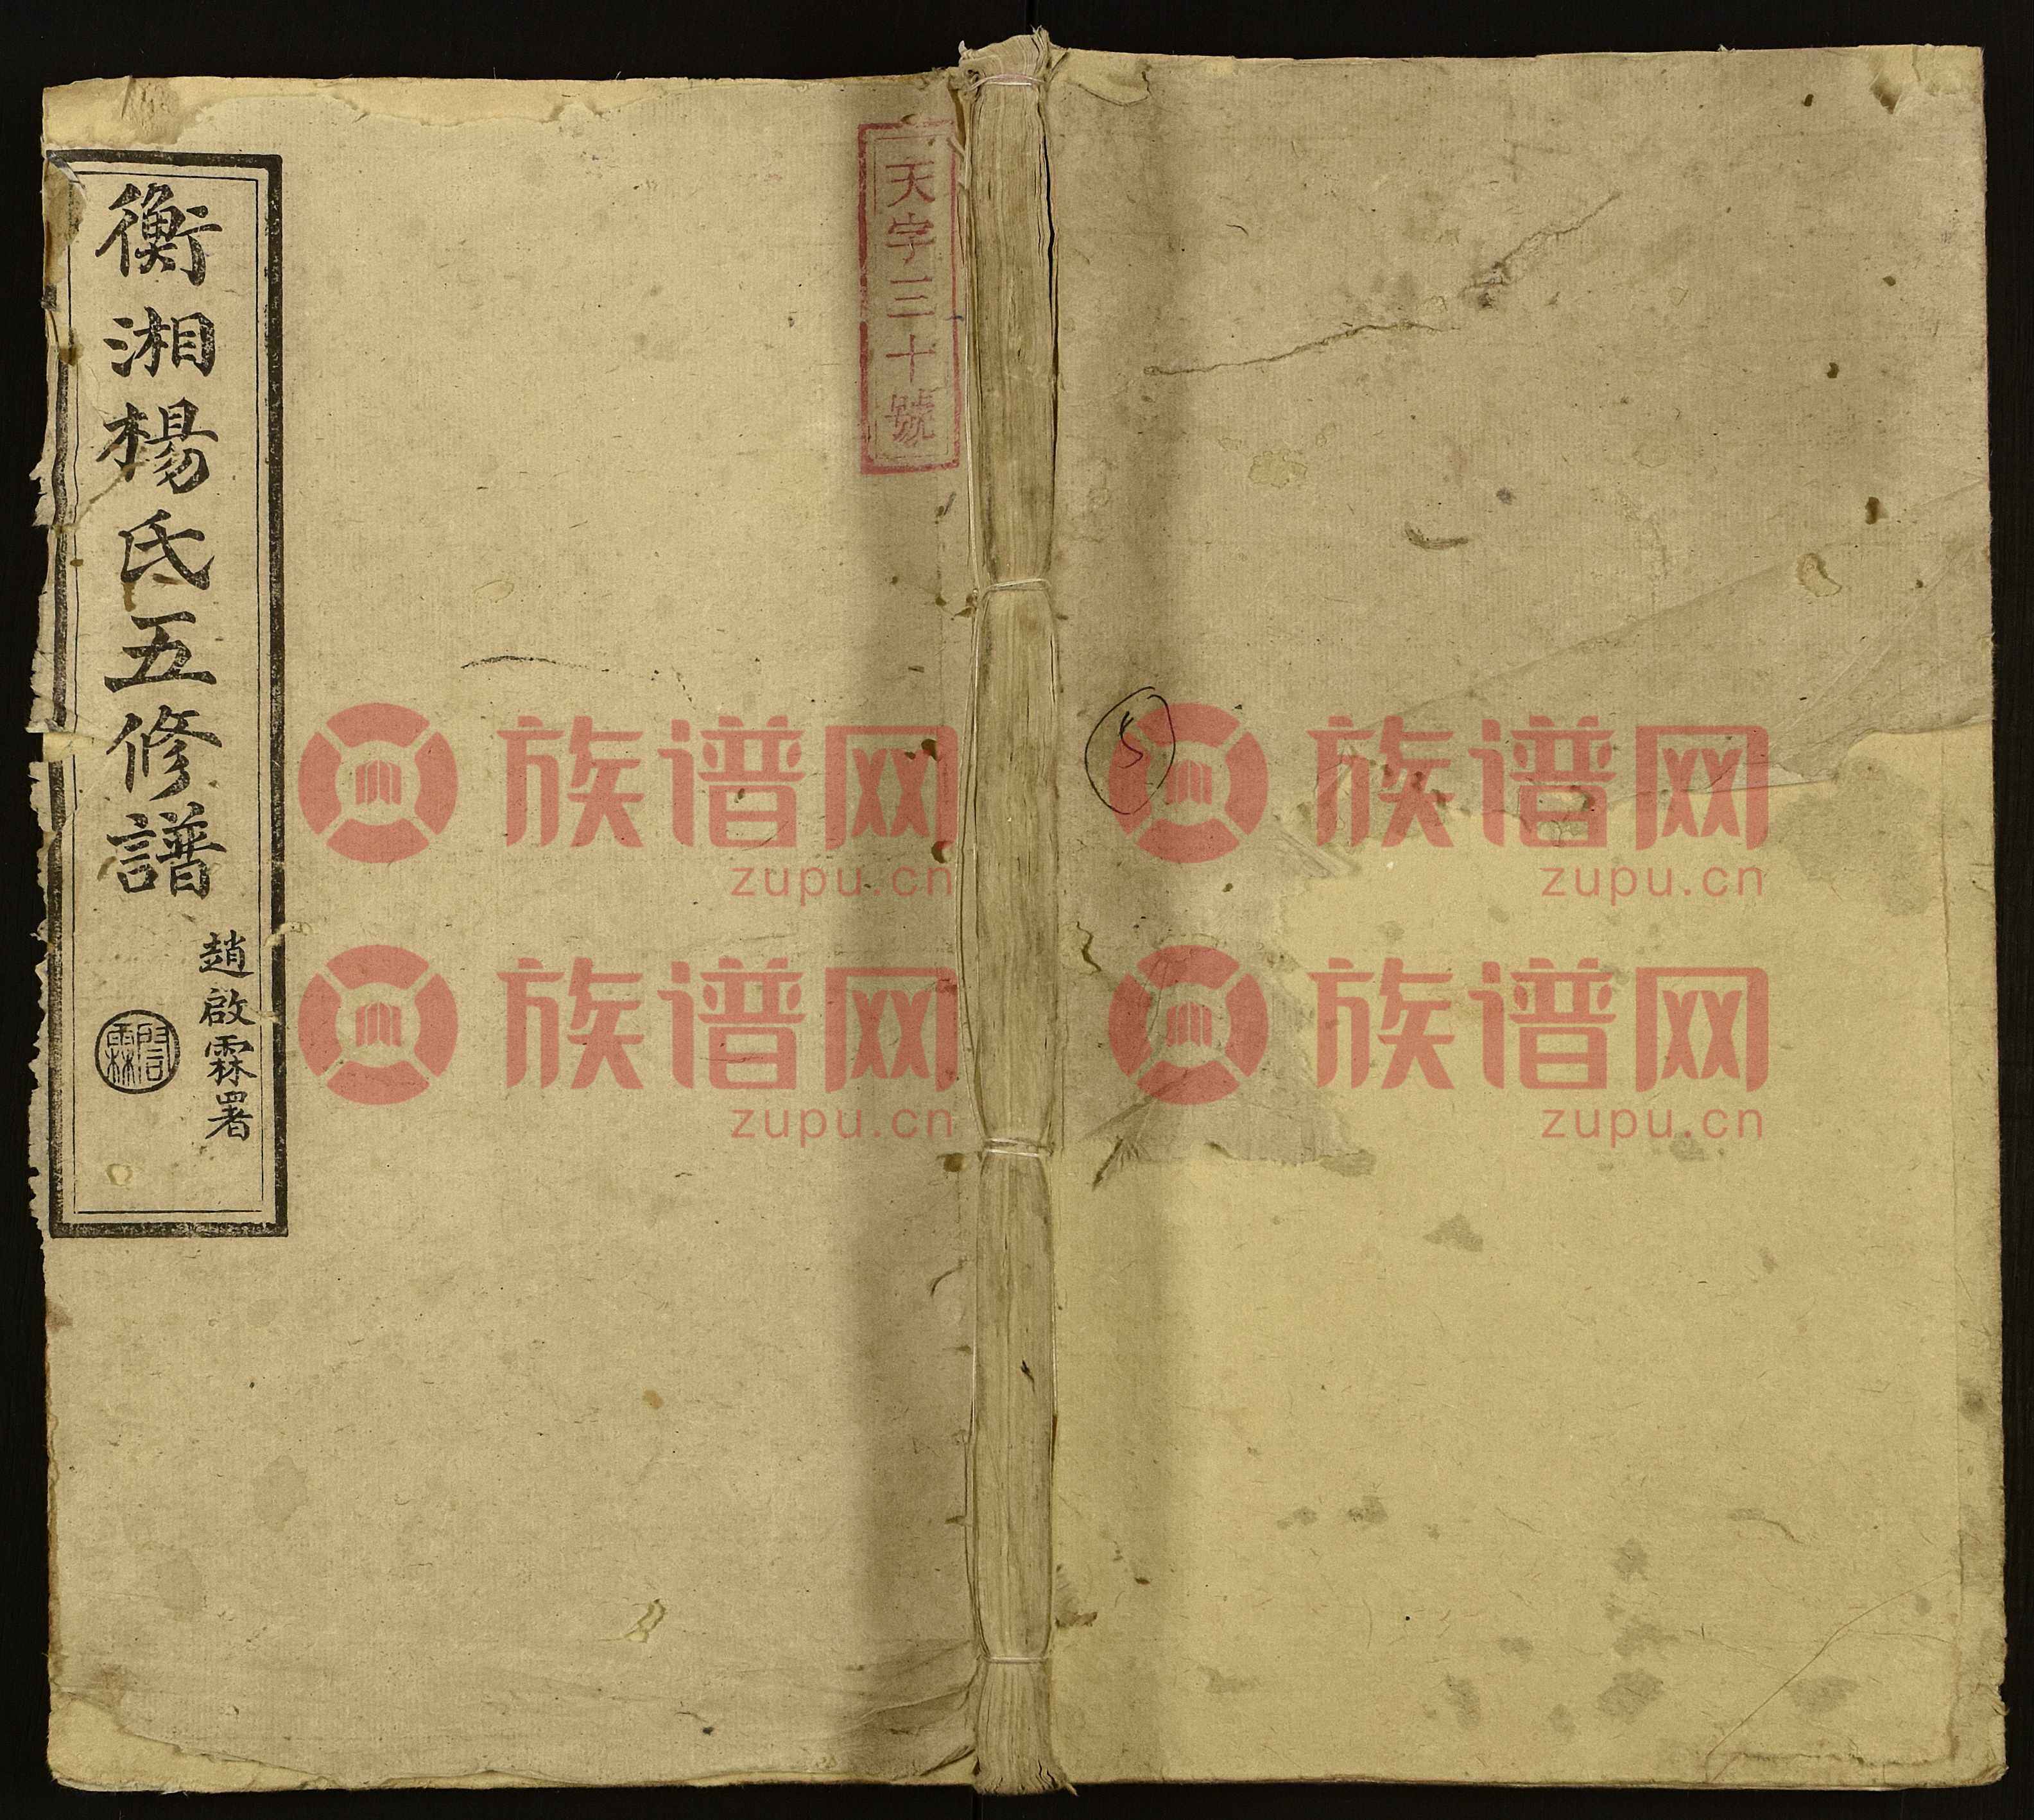 衡湘楊氏五修譜
趙啟霖署
天字三十號
5
族谱网
zupu.cn
族谱网
zupu.cn
族谱网
zupu.cn
族谱网
zupu.cn